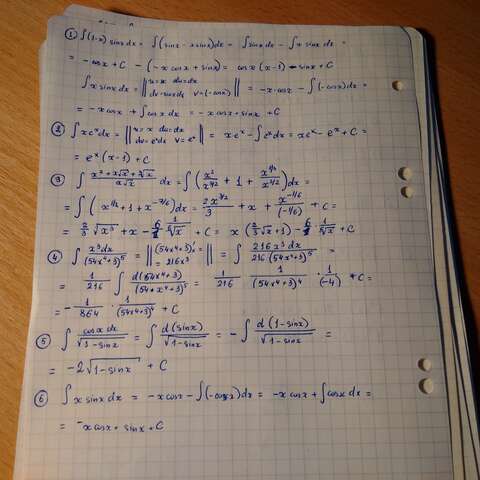 ① ∫(1-x) sinx dx = ∫(sinx - x sinx)dx = ∫sinx dx - ∫x sinx dx =
= -cosx + C - (-x cosx + sinx) = cosx (x-1) - sinx + C
∫x sinx dx = || u=x du=dx dv=sinx dx v=(-cosx) || = -x·cosx - ∫(-cosx)dx =
= -x cosx + ∫cosx dx = -x cosx + sinx + C
② ∫xe^x dx = || u=x du=dx dv=e^x dx v=e^x || = xe^x - ∫e^x dx = xe^x - e^x + C =
= e^x (x-1) + C
③ dx = ∫(x²/x^(1/2) + 1 + ) dx =
= ∫(x^(1/2) + 1 + x^(-7/6))dx = 2x^(3/2)/3 + x + x^(-1/6)/(-1/6) + C =
= 2/3 √x³ + x - 6 1/⁶√x + C = x (2/3 √x + 1) - 6 1/⁶√x + C
④ ∫ x³dx/(54x⁴+3)⁵ = || (54x⁴+3)' = = 216x³ || = ∫ 216x³dx/216(54x⁴+3)⁵ =
= 1/216 ∫ d(54x⁴+3)/(54x⁴+3)⁵ = 1/216 · 1/(54x⁴+3)⁴ · 1/(-4) + C =
= - 1/864 · 1/(54x⁴+3)⁴ + C
⑤ ∫ cosx dx/√(1-sinx) = ∫ d(sinx)/√(1-sinx) = -∫ d(1-sinx)/√(1-sinx) =
= -2√(1-sinx) + C
⑥ ∫x sinx dx = -x cosx - ∫(-cosx)dx = -x cosx + ∫cosx dx =
= -x cosx + sinx + C